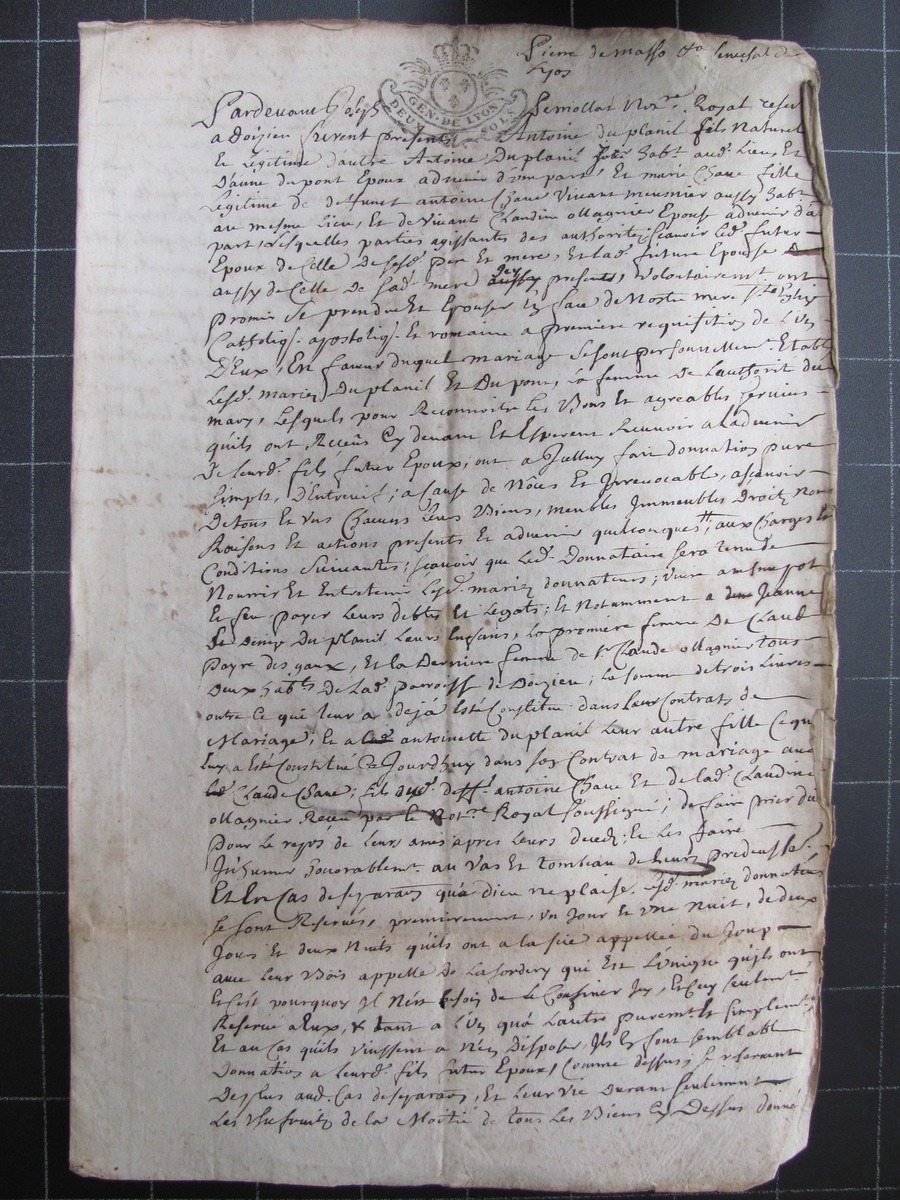 Pierre de masso &a senechal de
Lyon
GEN. DE LYON
DEUX SOLS
Pardevant Joseph Pemollat Not.re Royal reserv
a Doizieu furent presents Antoine du planil fils Naturel
Et Legitime d'autre Antoine Duplanil hab.t aud. Lieu, Et
D'anne dupont Epoux advenir d'une part, Et marie Chave fille
Legitime de deffunct antoine Chave Vivant meusnier aussy hab.t
au mesme Lieu, Et de vivant Claudine Magnier Epouse advenir d'a
part, Lesquelles parties agissants des authorités, scavoir Led. futur
Epoux de Celle de sesd. pere Et mere, Et lad. future Epouse
aussy de Celle de sad. mere icy presents, Volontairement ont
promis se prendre Et Epouser En face de Nostre mere S.te Eglise
Catholiq. apostoliq. Et romaine a premiere requisition de L'un
D'Eux, En faveur duquel mariage se sont personnellem.t Establ
Lesd. mariez Duplanil Et Dupont, La femme de Lauthorité du
mary, Lesquels pour Reconnoitre Les Bons Et agreables services
quils ont Receus Cy devant Et Esperent Recevoir a Ladvenir
De leurd. fils futur Epoux, ont a Jcelluy fait donnation pure
simple, D'Entrevifs, a Cause de Nôces Et Jrrevocable, ascavoir
De tous Et uns Chacuns Leurs Biens, meubles Jmmeubles Droits Noms
Raisons Et actions presents Et advenir quelconques, aux Charges Et
Conditions suivantes; scavoir que Led. Donnataire sera tenu de
Nourrir Et Entretenir Lesd. mariez donnateurs, vivre a mesme pot
Et feu payer Leurs debtes Et Legats; Et Notamment a Jeanne
Et Denize Du planil Leurs Enfans, La premiere femme De Claude
Payre des gaux, Et la Derniere femme de S.r Claude Magnier tous
Deux hab.ts De Lad. parroisse de Doizieu, La somme de trois Livres
outre Ce qui leur a dejà Esté Constitué dans leur Contrats de
Mariage; Et a antoinette du planil Leur autre fille Ce qui
Luy a Esté Constitué Ce Jourdhuy dans son Contrat de mariage avec
Claude Chave, fils dud. deff.t antoine Chave Et de lad. Claudine
Magnier Receu par le Not.re Royal soussigné; de faire prier dieu
Pour Le repos de Leurs ames apres Leurs deceds; Et Les faire
Jnhumer honorablem.t au Vas Et tombeau de Leurs predecesse.
Et En Cas de separaon qu'a dieu ne plaise, Lesd. mariez donnateurs
se sont Reservés, premierement, un Jour Et une Nuit, de deux
Jours Et deux Nuits quils ont a la scie appellée du Joup
avec Leur Bois appellé De Lasordery qui Est L'unique quils ont
Et C'est pourquoy Jl N'est besoin de le Confiner Jcy, Et Cuy seulement
Reservé a Eux, tant a L'un qua Lautre purem.t Et simplem.t
Et au Cas quils vinssent a N'en Disposer, Jls En font semblable
Donnation a Leurd. fils futur Epoux, Comme dessus; se reservent
De plus aud. Cas de separaon, Et Leur vie Durant seulement
Les Usufruits de la Moitié de tous Les Biens Cy Dessus donné